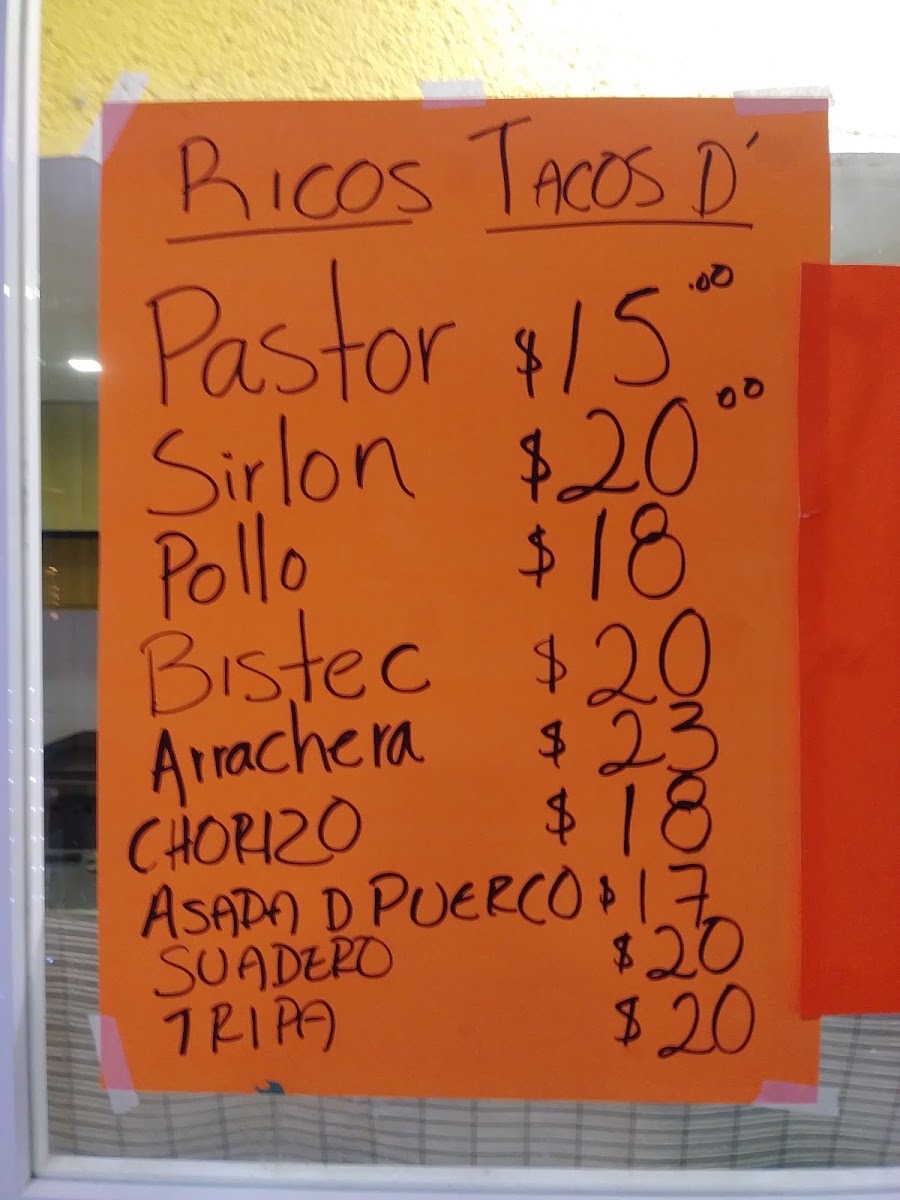 RICOS TACOS D'
Pastor $15.00
Sirlon $20.00
Pollo $18
Bistec $20
Arrachera $23
CHORIZO $18
ASADA D PUERCO $17
SUADERO $20
TRIPA $20